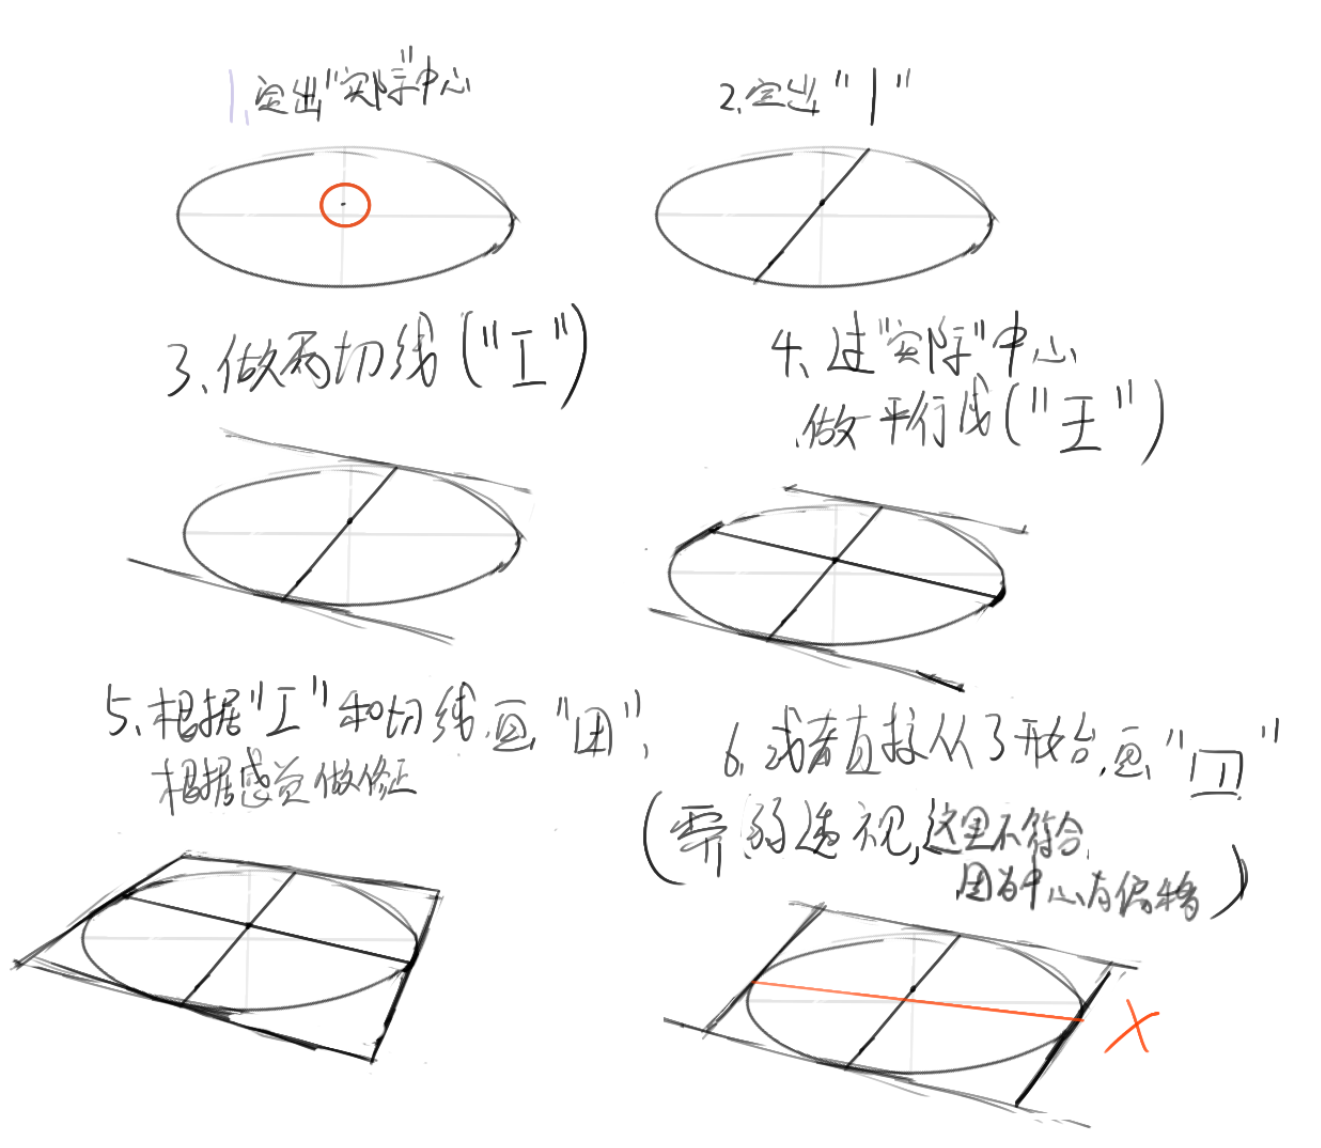 1.定出"实际"中心
2.定出"丨"
3.做两切线("工")
4.过"实际"中心
做平行线("王")
5.根据"工"和切线,画"囯",
根据感觉做修正
6.或者直接从3开始,画""
(需弱透视,这里不符合,
因为中心有偏移)